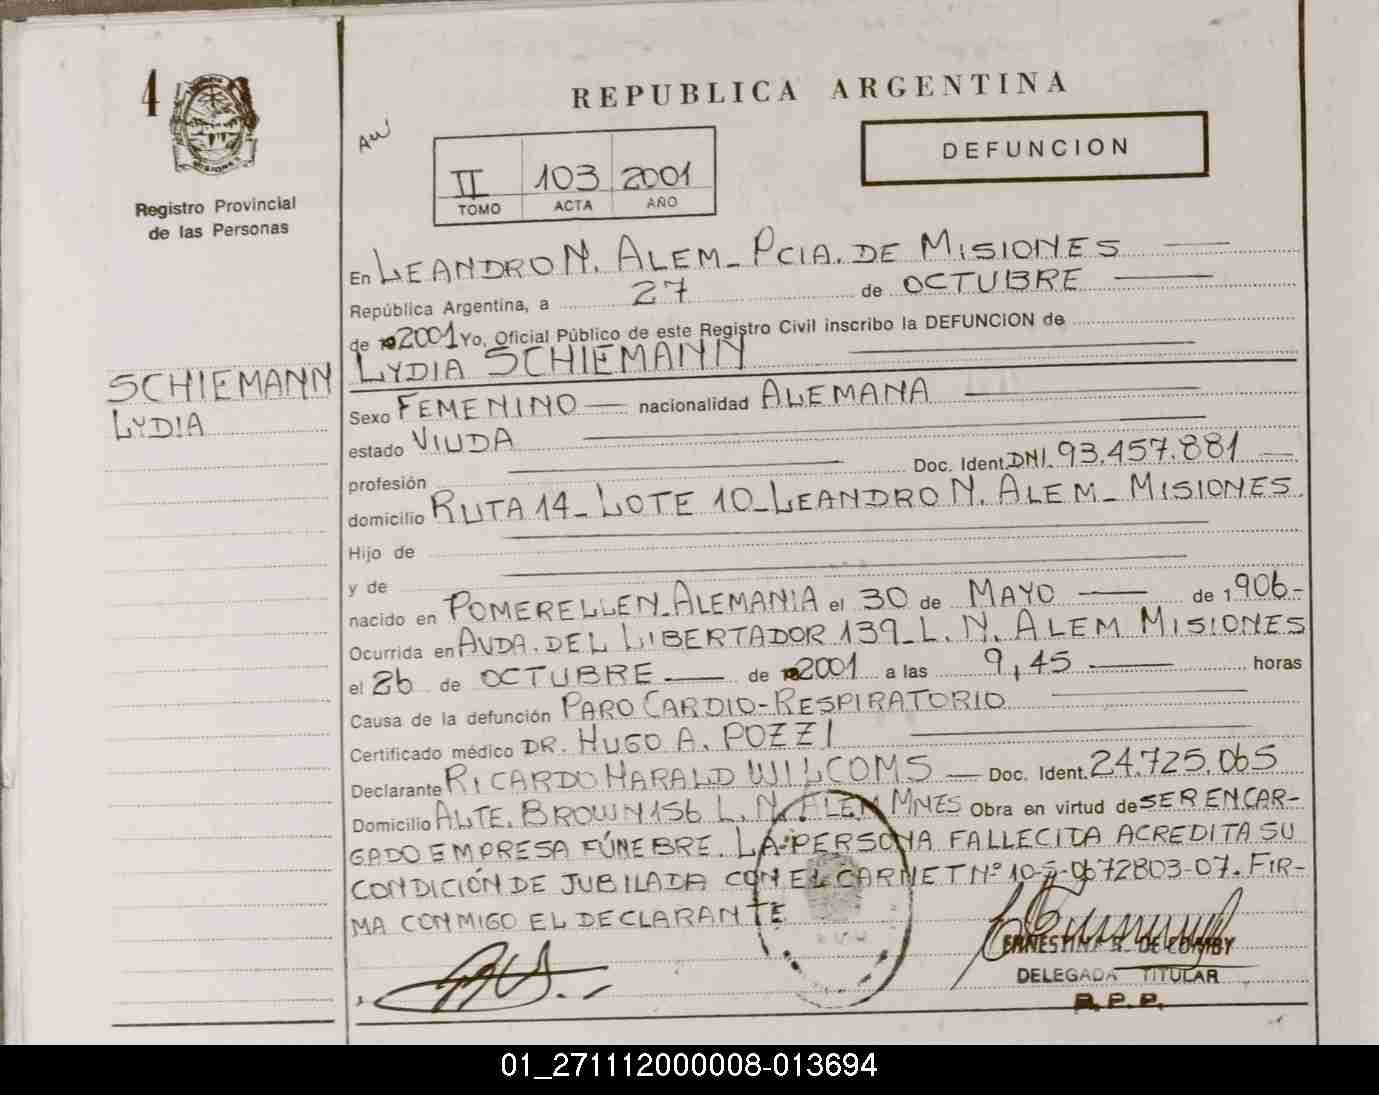 4
Registro Provincial
de las Personas
SCHIEMANN
LYDIA
REPUBLICA ARGENTINA
AW
II 103 2001
TOMO ACTA AÑO
DEFUNCION
En LEANDRO N. ALEM_ PCIA. DE MISIONES
República Argentina, a 27 de OCTUBRE
de 2001 Yo, Oficial Público de este Registro Civil inscribo la DEFUNCION de
LYDIA SCHIEMANN
Sexo FEMENINO nacionalidad ALEMANA
estado VIUDA
profesión Doc. Ident. DNI. 93.457.881
domicilio RUTA 14_ LOTE 10_ LEANDRO N. ALEM_ MISIONES
Hijo de
y de
nacido en POMERELLEN_ ALEMANIA el 30 de MAYO de 1906-
Ocurrida en AVDA. DEL LIBERTADOR 139_ L. N. ALEM MISIONES
el 26 de OCTUBRE de 2001 a las 9,45 horas
Causa de la defunción PARO CARDIO-RESPIRATORIO
Certificado médico DR. HUGO A. POZZI
Declarante RICARDO HARALD WILCOMS Doc. Ident. 24.725.065
Domicilio ALTE. BROWN 156 L. N. ALEM MNES Obra en virtud de SER ENCAR-
GADO EMPRESA FÚNEBRE. LA PERSONA FALLECIDA ACREDITA SU
CONDICIÓN DE JUBILADA CON EL CARNET Nº
FIR-
MA CONMIGO EL DECLARANTE
DELEGADA TITULAR
R.P.P.
01_271112000008-013694